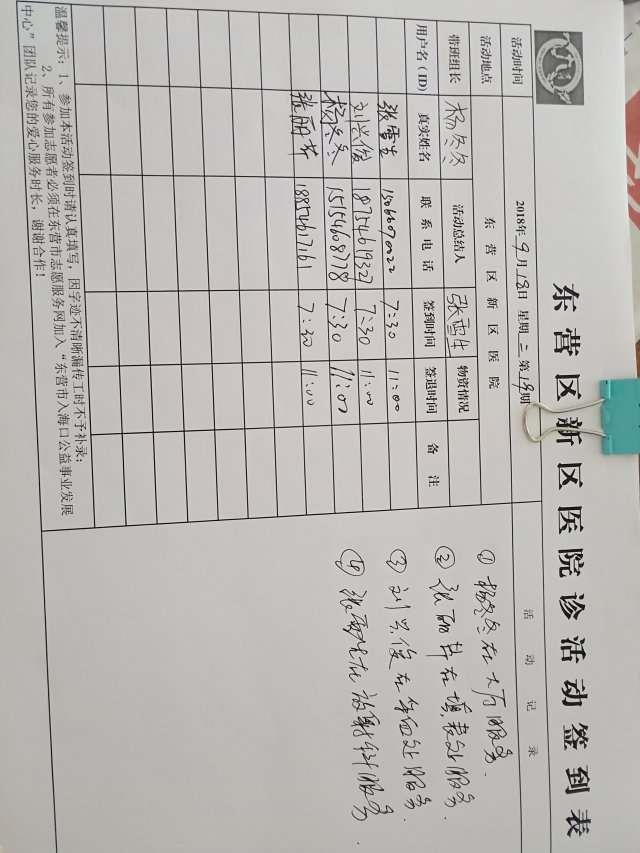 东营区新区医院诊活动签到表
活动时间 2018年9月18日 星期二 第19期 活动记录
活动地点 东营区新区医院
带班组长 杨冬冬 活动总结人 张雪生 物资情况
用户名（ID） 真实姓名 联系电话 签到时间 签退时间 备注
张雪生 7:30 11:00
刘兴俊 18754619327 7:30 11:00
杨冬冬 15154608778 7:30 11:00
张丽苹 18854617161 7:30 11:00
①杨冬冬在大厅服务.
②张丽苹在填表处服务.
③刘兴俊在 处服务.
④张雪生在放射科服务.
温馨提示：1、参加本活动签到时请认真填写，因字迹不清晰漏传工时不予补录；
2、所有参加志愿者必须在东营市志愿服务网加入“东营市入海口公益事业发展
中心”团队记录您的爱心服务时长，谢谢合作！